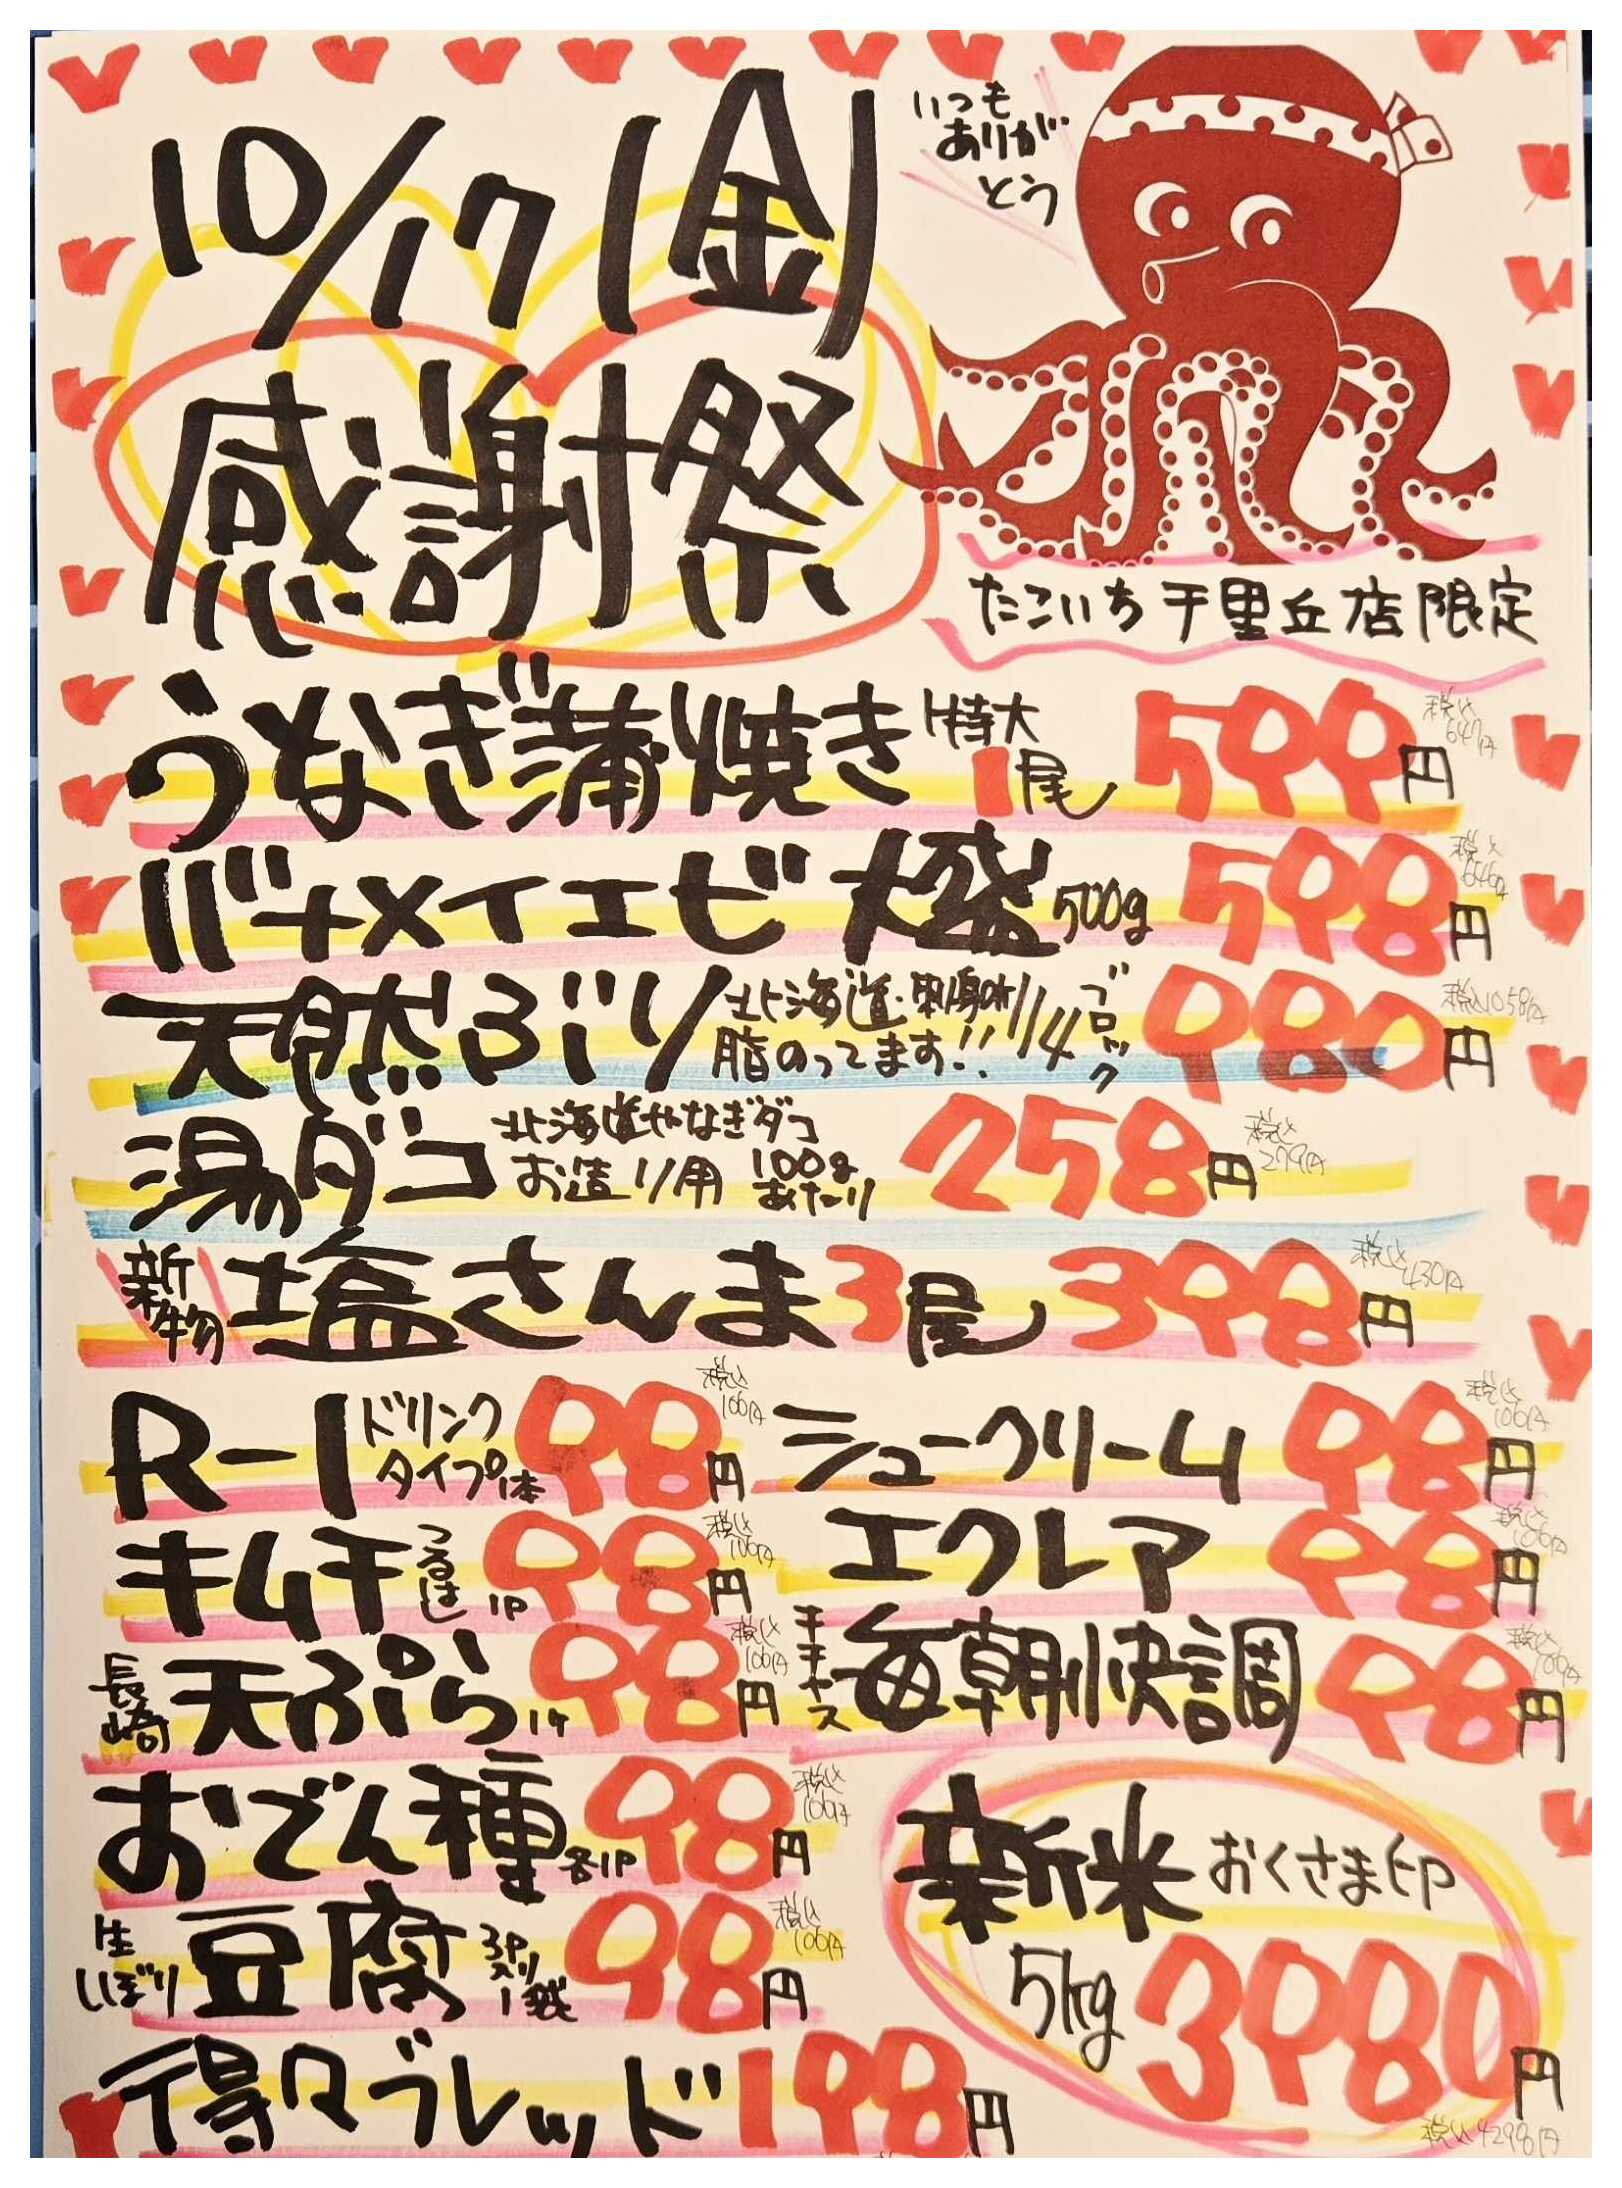 10/17(金)
感謝祭
いつも
ありが
とう
たこいち千里丘店限定
うなぎ蒲焼き 特大 1尾 599円 税込647円
バナメイエビ 大盛 500g 598円 税込646円
天然ぶり 北海道・刺身用 脂のってます!! 1/4ブロック 980円 税込1058円
湯ダコ 北海道やなぎダコ お造り用 100gあたり 258円 税込279円
新物 塩さんま 3尾 398円 税込430円
R-1 ドリンクタイプ1本 98円 税込106円
キムチ つるはし 1P 98円 税込106円
長崎 天ぷら 1ケ 98円 税込106円
おでん種 各1P 98円 税込106円
生しぼり 豆腐 3P入り1袋 98円 税込106円
得々ブレッド 198円
シュークリーム 98円 税込106円
エクレア 98円 税込106円
毎朝快調 98円 税込106円
新米 おくさま印
5kg 3980円
税込4298円